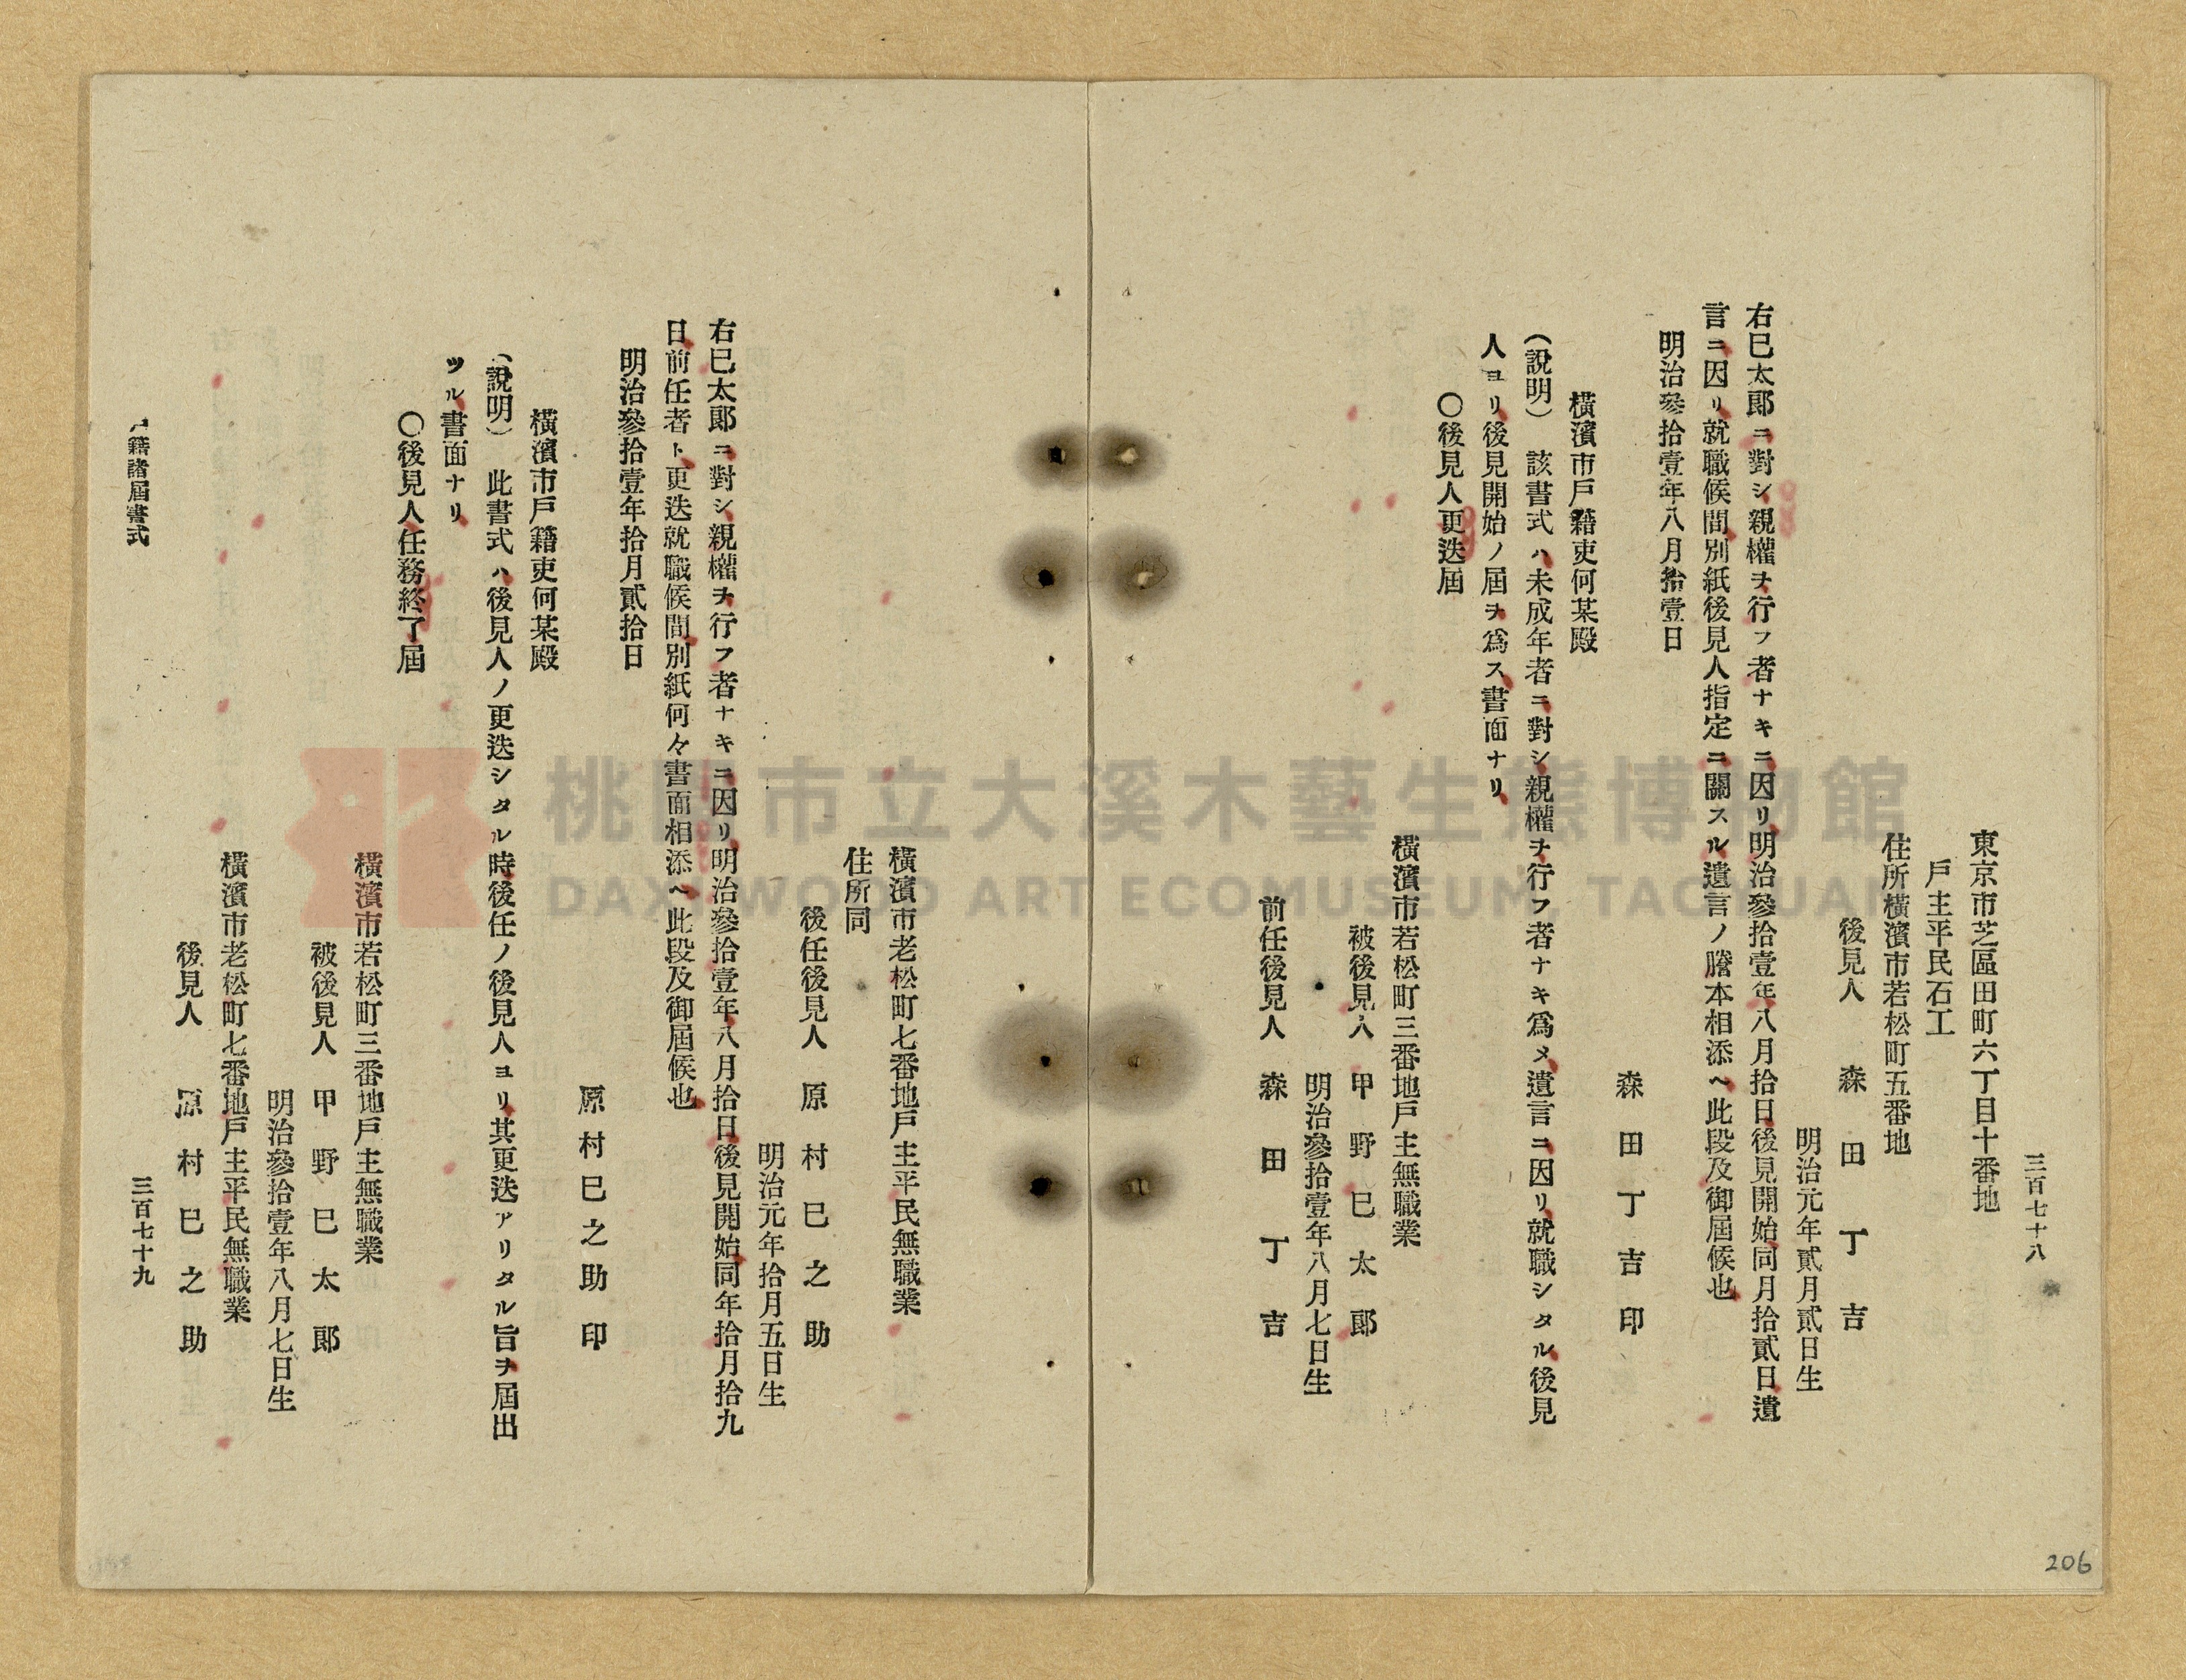 三百七十八
東京市芝區田町六丁目十番地
戶主平民石工
住所橫濱市若松町五番地
後見人　森田丁吉
明治元年貳月貳日生
右巳太郞ニ對シ親權ヲ行フ者ナキニ因リ明治參拾壹年八月拾日後見開始同月拾貳日遺
言ニ因リ就職候間別紙後見人指定ニ關スル遺言ノ謄本相添ヘ此段及御屆候也
明治參拾壹年八月拾壹日
森田丁吉印
橫濱市戶籍吏何某殿
(說明)　該書式ハ未成年者ニ對シ親權ヲ行フ者ナキ爲メ遺言ニ因リ就職シタル後見
人ヨリ後見開始ノ屆ヲ爲ス書面ナリ
〇後見人更迭屆
橫濱市若松町三番地戶主無職業
被後見人　甲野巳太郞
明治參拾壹年八月七日生
前任後見人　森田丁吉
橫濱市老松町七番地戶主平民無職業
住所同
後任後見人　原村巳之助
明治元年拾月五日生
右巳太郞ニ對シ親權ヲ行フ者ナキニ因リ明治參拾壹年八月拾日後見開始同年拾月拾九
日前任者ト更迭就職候間別紙何々書面相添ヘ此段及御屆候也
明治參拾壹年拾月貳拾日
原村巳之助印
橫濱市戶籍吏何某殿
(說明)　此書式ハ後見人ノ更迭シタル時後任ノ後見人ヨリ其更迭アリタル旨ヲ屆出
ツル書面ナリ
〇後見人任務終了屆
橫濱市若松町三番地戶主無職業
被後見人　甲野巳太郞
明治參拾壹年八月七日生
橫濱市老松町七番地戶主平民無職業
後見人　原村巳之助
戶籍諸屆書式
三百七十九
206
桃園市立大溪木藝生態博物館
DAXI WOOD ART ECOMUSEUM, TAOYUAN